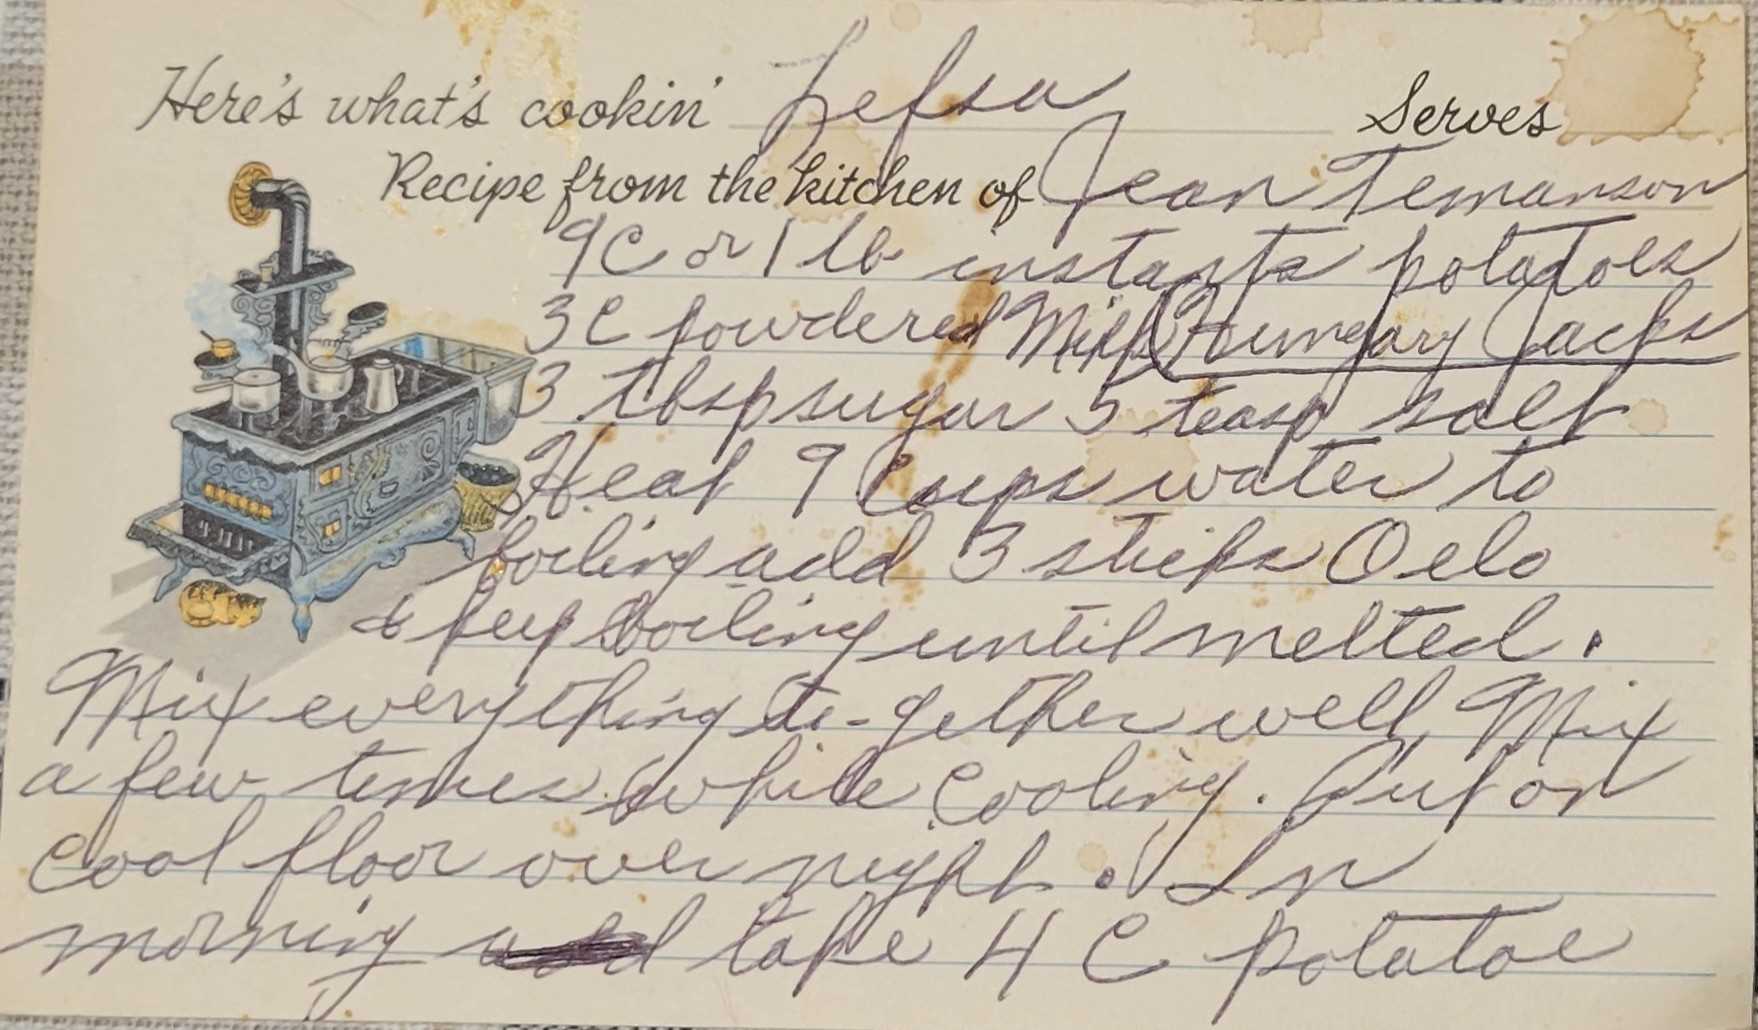 Here's what's cookin' Lefsa Serves
Recipe from the kitchen of Jean Temanson
9C or 1 lb instants potatoes
3C powdered Milk (Hungary Jacks
3 tbsp sugar 5 teasp salt
Heat 9 Cups water to
boiling add 3 sticks Oelo
& keep boiling until melted.
Mix everything to-gether well, Mix
a few times while cooling. Put on
cool floor over night. In
morning take 4 C potatoe